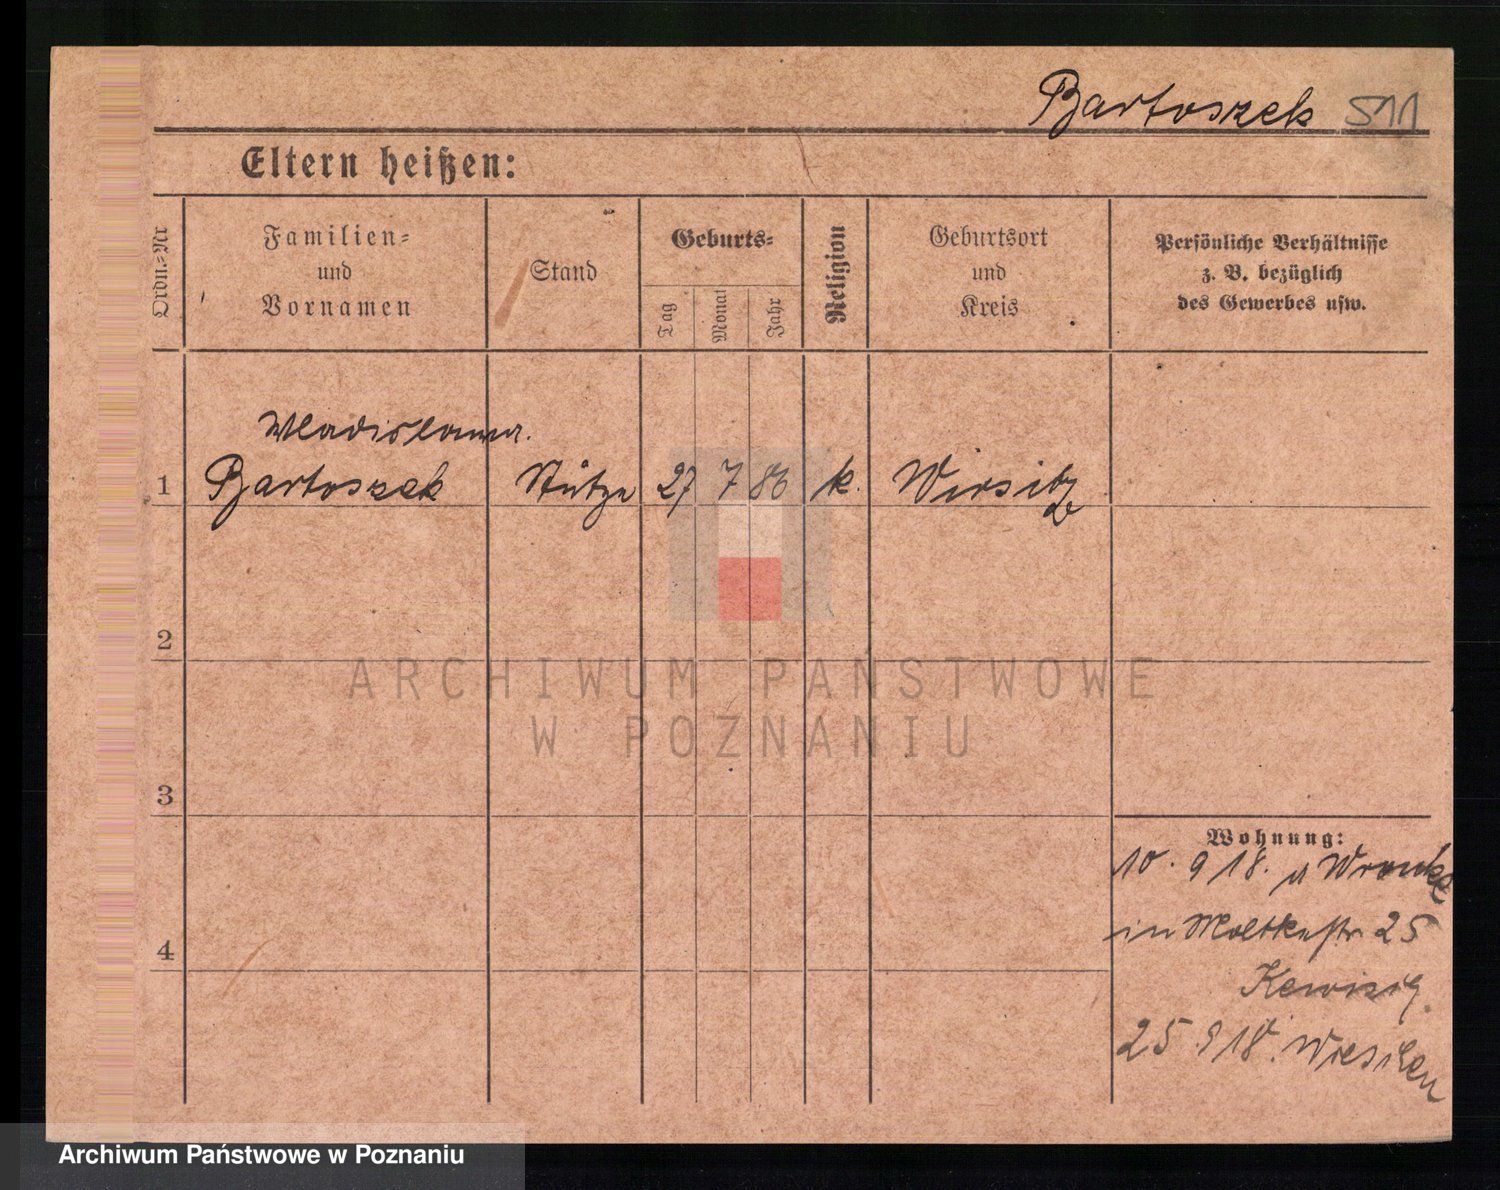 Bartoszek 511
Eltern heißen:
Ordn.-Nr
Familien-
und
Vornamen
Stand
Geburts-
Tag
Monat
Jahr
Religion
Geburtsort
und
Kreis
Persönliche Verhältnisse
z. B. bezüglich
des Gewerbes usw.
Wladislawa.
1 Bartoszek Stütze 27 7 86 k. Wirsitz
2
ARCHIWUM PAŃSTWOWE
W POZNANIU
3
Wohnung:
10. 9 18. v Wronke
in Moltkestr 25
4
25. 9 18.
Archiwum Państwowe w Poznaniu